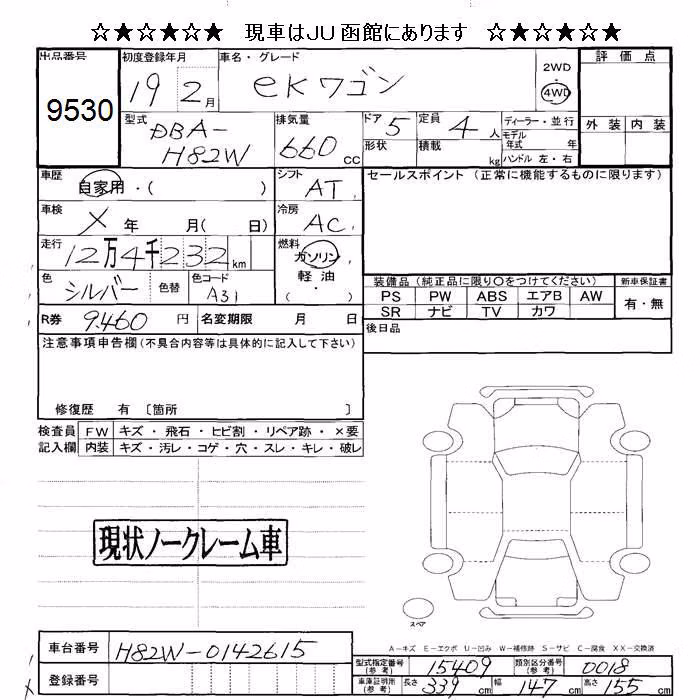 ☆★☆★☆★ 現車はJU函館にあります ☆★☆★☆★
出品番号
9530
初度登録年月
19 2月
車名・グレード
eKワゴン
2WD
4WD
評価点
外装 内装
型式
DBA-
H82W
排気量
660cc
ドア
5
形状
定員
4人
積載
kg
ディーラー・並行
モデル
年式 年
ハンドル 左・右
車歴
自家用・( )
シフト
AT
セールスポイント(正常に機能するものに限ります)
車検
X年 月( 日)
冷房
AC
走行
12万4千232km
燃料
ガソリン
軽油
( )
色
シルバー
色替
色コード
A31
装備品(純正品に限り○をつけてください)
PS PW ABS エアB AW
SR ナビ TV カワ
新車保証書
有・無
R券 9.460円
名変期限 月 日
後日品
注意事項申告欄(不具合内容等は具体的に記入して下さい)
修復歴 有 〔箇所 〕
検査員
記入欄
FW キズ・飛石・ヒビ割・リペア跡・×要
内装 キズ・汚レ・コゲ・穴・スレ・キレ・破レ
現状ノークレーム車
スペア
A-キズ E-エクボ U-凹み W-補修跡 S-サビ C-腐食 XX-交換済
車台番号 H82W-0142615
登録番号
型式指定番号
(参考)
15409
類別区分番号
(参考)
0018
車庫証明用
(参考)
長さ 339cm
幅 147cm
高さ 155cm